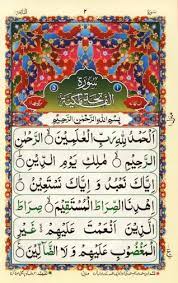 سُوْرَةُ
الْفَاتِحَةِ مَكِّيَّةٌ
بِسْمِ اللهِ الرَّحْمٰنِ الرَّحِيْمِ
اَلْحَمْدُ لِلّٰهِ رَبِّ الْعٰلَمِيْنَ ۙ الرَّحْمٰنِ
الرَّحِيْمِ ۙ مٰلِكِ يَوْمِ الدِّيْنِ ؕ
اِيَّاكَ نَعْبُدُ وَ اِيَّاكَ نَسْتَعِيْنُ ؕ
اِهْدِنَا الصِّرَاطَ الْمُسْتَقِيْمَ ۙ صِرَاطَ
الَّذِيْنَ اَنْعَمْتَ عَلَيْهِمْ ۙ غَيْرِ
الْمَغْضُوْبِ عَلَيْهِمْ وَ لَا الضَّآلِّيْنَ